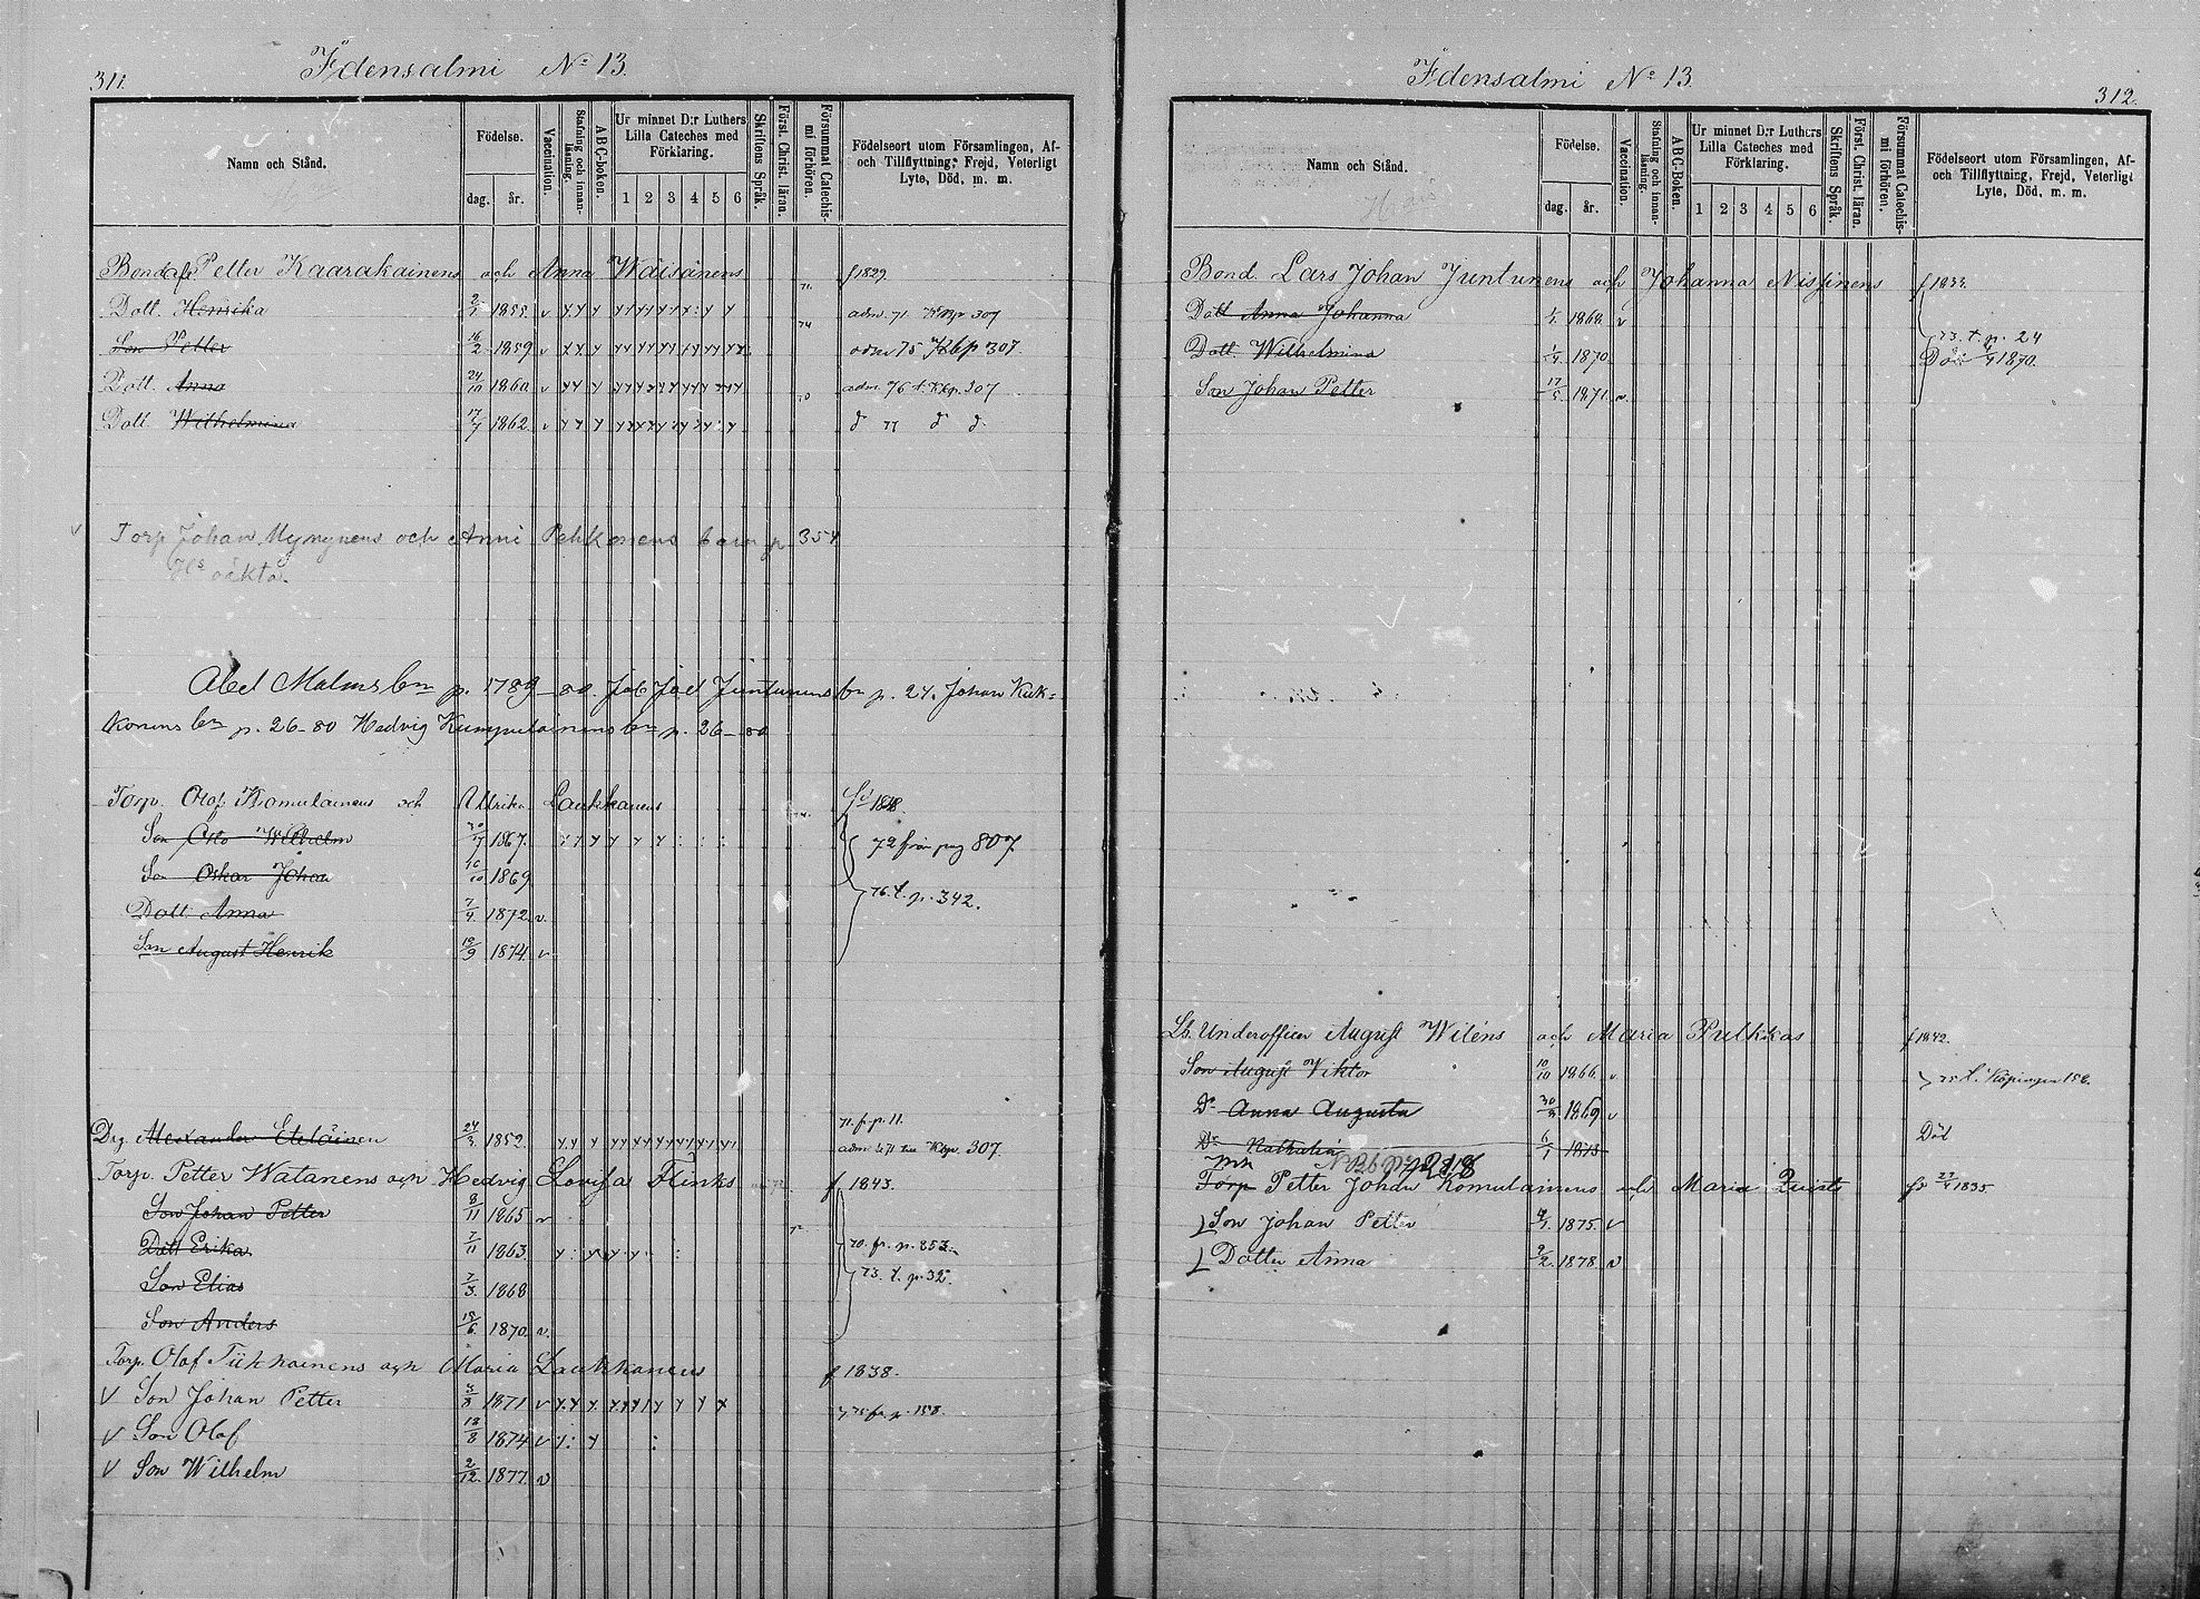 311.
Idensalmi No 13.
Namn och Stånd.
Födelse.
dag. år.
Vaccination.
Stafning och innanläsning.
ABC-boken.
Ur minnet D:r Luthers Lilla Cateches med Förklaring.
1 2 3 4 5 6
Skriftens Språk.
Först. Christ. läran.
Försummat Catechismi förhören.
Födelseort utom Församlingen, Af- och Tillflyttning, Frejd, Veterligt Lyte, Död, m. m.
Petter Kaarakainens och Anna Wäisänens f 1829
Dott. Henrika 1855. v adm. 71. Kbp 307
Son Petter 16/2 1859 v adm 75 Kbp 307.
Dott. Anna 24/10 1860 v adm. 76 t. Kbp. 307
Dott. Wilhelmina 17/7 1862 v d 77 d d
Torp Johan Mynynens och Anni Pehkonens barn p 354
oäkta.
Abel Malms bn p. 1789-80. Joel Juntunens bn p. 24. Johan Kuk=
konens bn p. 26-80 Hedvig Kumpulainens bn p. 26-80
Torp. Olof Komulainens och Ulrika Laukkanens
Son Otto Wilhelm 1867. 72 från pag 807.
Son Oskar Johan 16/10 1869
Dott. Anna 7/4. 1872 v. 76. t. p. 342.
Son August Henrik 19/9 1874 v
71. f. p. 11.
Drg. Alexander Eteläinen 24/3. 1852. Kbp. 307.
Torp. Petter Watanens och Hedvig Lovisa Flinks f 1843.
Son Johan Petter 8/11 1865 v
Dott Erika 7/11 1863 70. fr. p. 853.
Son Elias 7/3. 1868 73. t. p. 32.
Son Anders 18/6. 1870. v.
Torp. Olof Tikkainens och Maria Laukkanens f 1838.
V Son Johan Petter 3/8 1871 v 75 fr. p. 158.
V Son Olof 13/8 1874 v
V Son Wilhelm 2/12. 1877. v
Idensalmi No 13.
312.
Namn och Stånd.
Födelse.
dag. år.
Vaccination.
Stafning och innanläsning.
ABC-Boken.
Ur minnet D:r Luthers Lilla Cateches med Förklaring.
1 2 3 4 5 6
Skriftens Språk.
Först. Christ. läran.
Försummat Catechismi förhören.
Födelseort utom Församlingen, Af- och Tillflyttning, Frejd, Veterligt Lyte, Död, m. m.
Bond. Lars Johan Juntunens och Johanna Nissinens f 1833.
Dott Anna Johanna 1868. v
73. t. p. 24
Dott. Wilhelmina 1870. Död 1870.
Son Johan Petter 17/5 1871. v.
Underofficer August Wiléns och Maria Pulkkas f 1842.
Son August Viktor 10/10 1866 v 75 t. Köpingen 156.
Dr Anna Augusta 1869 v
Dr Nathalia 6/1 1873 Död
Torp Petter Johan Komulainens och Maria Quists 1835
Son Johan Petter 1875 v
Dotter Anna 2/2. 1878 v